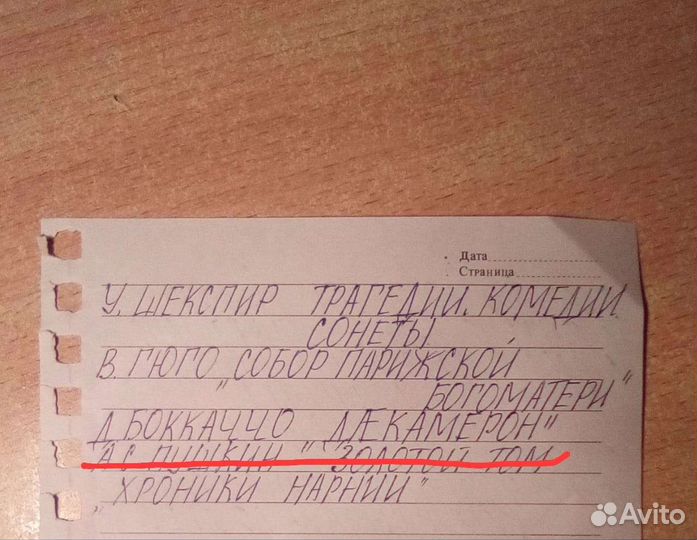 Дата
Страница
У. ШЕКСПИР ТРАГЕДИИ. КОМЕДИИ.
СОНЕТЫ
В. ГЮГО „СОБОР ПАРИЖСКОЙ
БОГОМАТЕРИ"
Д. БОККАЧЧО ДЕКАМЕРОН"
А.С. ПУШКИН „ ЗОЛОТОЙ ТОМ
„ХРОНИКИ НАРНИИ"
Avito